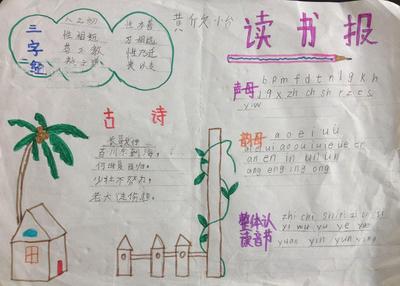 三字经
人之初 性本善
性相近 习相远
苟不教 性乃迁
教之道 贵以专
读书报
声母 b p m f d t n l g k h
j q x zh ch sh r z c s
y w
古诗
百川东到海，
何时复西归。
少壮不努力，
老大徒伤悲。
韵母 a o e i u ü
ai ei ui ao ou iu ie üe er
an en in un ün
ang eng ing ong
整体认读音节
zhi chi shi ri zi ci si
yi wu yu ye yue
yuan yin yun ying